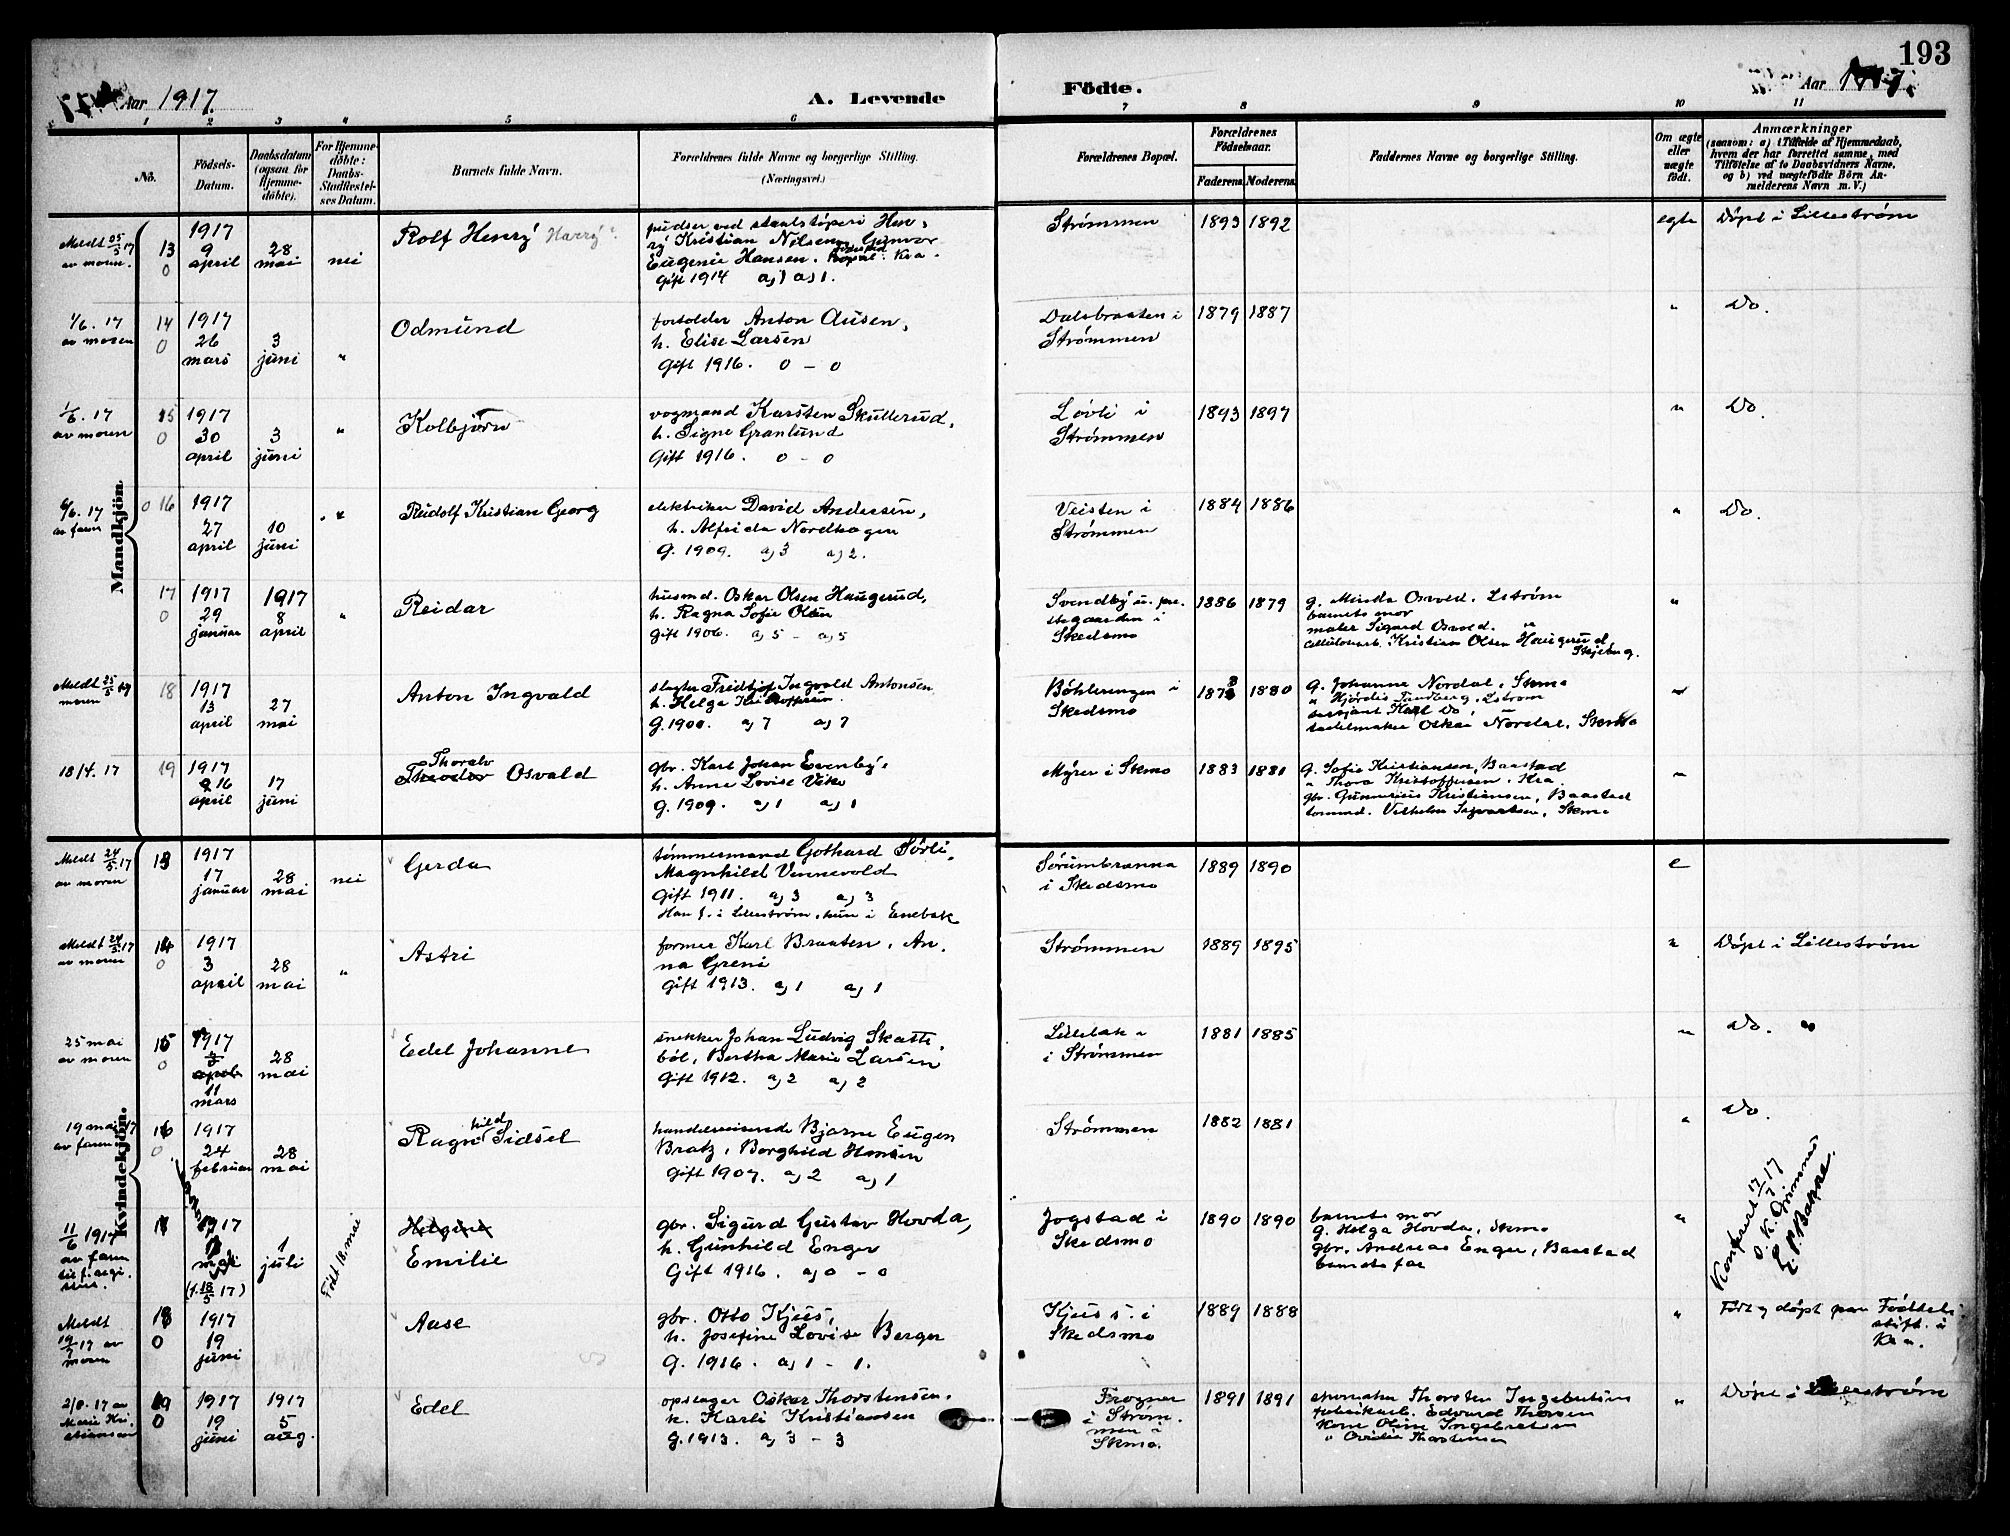 193
Aar 1917.
A. Levende
Födte.
Aar 1917.
1 2 3 4 5 6 7 8 9 10 11
No.
Födsels-Datum.
Daabsdatum (ogsaa for Hjemmedöbte).
For Hjemmedöbte: Daabs-Stadfæstelses Datum.
Barnets fulde Navn.
Forældrenes fulde Navne og borgerlige Stilling. (Næringsvei.)
Forældrenes Bopæl.
Forældrenes Födselsaar.
Faderens. Moderens.
Faddernes Navne og borgerlige Stilling.
Om ægte eller uægte födt.
Anmærkninger
(saasom: a) i Tilfælde af Hjemmedaab, hvem der har forrettet samme, med Tilföielse af to Daabsvidners Navne, og b) ved uægtefödte Börn Anmelderens Navn m. V.)
Mandkjön.
Meldt 25/5 17 av moren. 13 0 1917 9 april 28 mai nei Rolf Henry Harry?
pudser ved staalstöperi Hen-
ry Kristian Nilsen, Gunvor
Eugenie Hansen. Kra.
Gift 1914 a) 1 a) 1.
Strömmen 1893 1892 egte Döpt i Lilleström
1/6. 17 av moren 14 0 1917 26 mars 3 juni " Odmund
forholder Anton Ausen,
h. Elise Larsen
Gift 1916. 0 - 0
Dalsbraaten i Strömmen 1879 1887 " Do.
1/6. 17 av moren 15 0 1917 30 april 3 juni " Kolbjørn
vogmand Karsten Skullerud,
h. Signe Granlund
Gift 1916. 0 - 0
Løvli i Strömmen 1893 1897 " Do.
6/6. 17 av faren 0 16 1917 27 april 10 juni " Reidolf Kristian Georg
elektriker David Andersen,
h. Alfrida Nordhagen
G. 1909. a) 3 a) 2.
Veisten i Strömmen 1884 1886 " Do.
17 0 1917 29 januar 1917 8 april " Reidar
husmd. Oskar Olsen Haugerud,
h. Ragna Sofie Olsen
Gift 1906. a) 5 - a) 5
Svendby u. prestegaarden i Skedsmo 1886 1879
g. Minda Osvold. Lström
barnets mor
maler Sigurd Osvold. "
cellulosearb. Kristian Olsen Haugerud, Skjeberg.
"
Meldt 25/5 17 moren 18 1917 13 april 27 mai Anton Ingvald
slagter Fridtjof Ingvald Antonsen,
h. Helga Kristoffersen.
G. 1900. a) 7 a) 7
Böhlerengen i Skedsmo 1878 1880
G. Johanne Nordal, Skmo
" Hjördis Tandberg, Lström
Karl Do,
sadelmaker Oskar Nordal, Skmo
"
18/4. 17 19 1917 16 april 17 juni Thoralv Osvald
gbr. Karl Johan Evenby,
h. Anne Lovise Vike
G. 1909. a) 1 a) 1
Myrer i Skmo 1883 1881
G. Sofie Kristiansen, Baastad
" Thora Kristoffersen, Kra
gbr. Gunnerius Kristiansen, Baastad
tommd. Vilhelm Sigvartsen, Skmo
"
Kvindekjön.
Meldt 24/5. 17 av moren 13 1917 17 januar 28 mai nei Gerda
tömmermand Gothard Sörli,
Magnhild Vennevold
Gift 1911. a) 3 a) 3
Han f. i Lilleström, hun i Enebak
Sörumbranna i Skedsmo 1889 1890 e
Meldt 24/5. 17 av moren 14 0 1917 3 april 28 mai " Astri
former Karl Braaten, An-
na Greni
Gift 1913. a) 1 a) 1
Strömmen 1889 1895 " Döpt i Lilleström
25 mai av moren 15 0 1917 april 11 mars 28 mai Edel Johanne
snekker Johan Ludvig Skatte-
böl, Bertha Marie Larsen
Gift 1912. a) 2 a) 2
Lillebæk i Strömmen 1881 1885 " Do. "
19 mai 17 av faren 16 0 1917 24 februar 28 mai Ragnhild Sidsel
handelsreisende Bjarne Eugen
Bratz, Borghild Hansen
Gift 1907. a) 2 a) 1
Strömmen 1882 1881 " Do.
11/6 1917 av faren 17 1917 mai (f. 18/5 17) 1 juli Födt 18. mai Helgine Emilie
gbr. Sigurd Gustav Hovda,
h. Gunhild Enger
Gift 1916. a) 0 - 0
Jogstad i Skedsmo 1890 1890
barnets mor
G. Helga Hovda, Skmo
gbr. Andreas Enger, Baastad
barnets far
"
Konferert 17/7 17
O. K. Grimnes
E. P. Bakke.
Meldt 19/7 17 av moren 18 0 1917 19 juni Aase
gbr. Otto Kjus,
h. Josefine Lovise Berger
G. 1916. a) 1 - 1.
Kjus s. i Skedsmo 1889 1888 " Födt og döpt paa Födselsstift. i Kra.
2/8. 17 av Marie Kristiansen 19 0 1917 19 juni 1917 5 aug. Edel
opslager Oskar Thorstensen,
h. Karli Kristiansen
G. 1913. a) 3 - 3
Frogner i Strömmen i Skmo. 1891 1891
skomaker Thorsten Ingebretsen
fabrikarb. Edvard Thoresen
Kone Oline Ingebretsen
" Ovidia Thorstensen
" Döpt i Lilleström